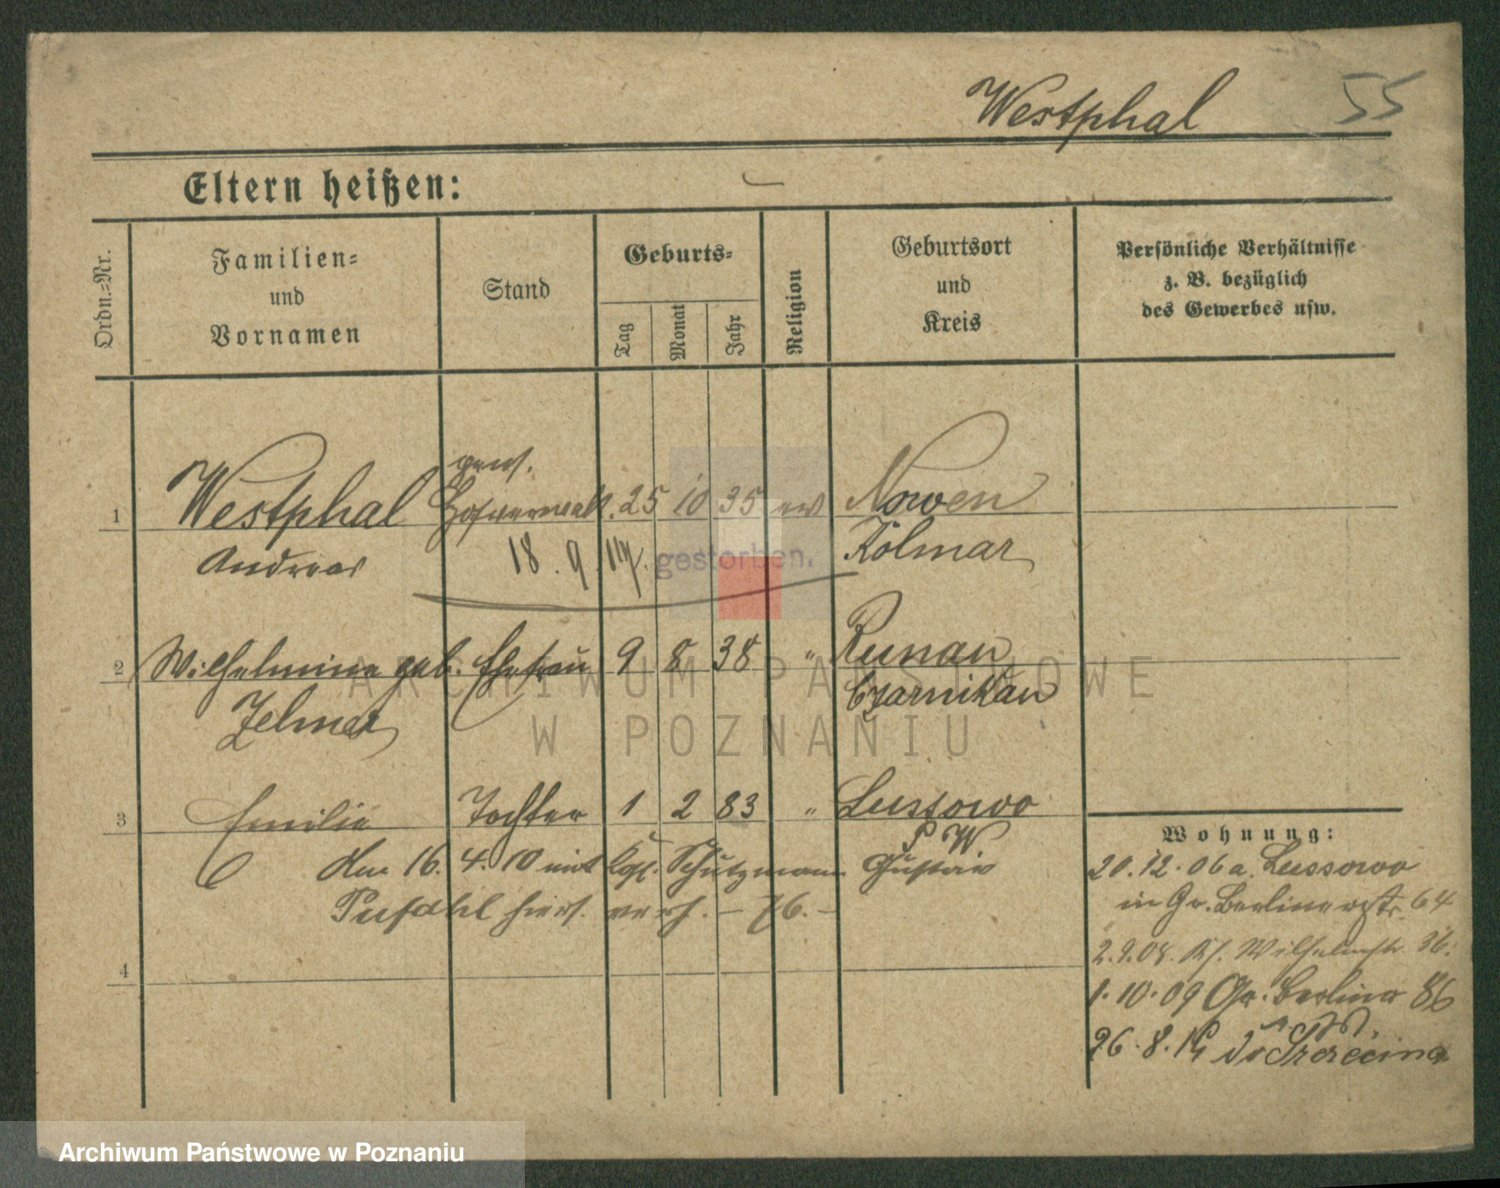 Westphal 55
Eltern heißen: —
Ordn.-Nr.
Familien-
und
Vornamen
Stand
Geburts-
Tag
Monat
Jahr
Religion
Geburtsort
und
Kreis
Persönliche Verhältnisse
z. B. bezüglich
des Gewerbes usw.
gew.
1 Westphal Hofverwalt. 25 10 35 ev Nowen
Andreas 18.9.14. gestorben. Kolmar
2 Wilhelmine geb. Ehefrau 9 8 38 " Runau
Zelmer Czarnikau
3 Emilie Tochter 1 2 83 " Lussowo
P W
Am 16.4.10 mit Kgl. Schutzmann Gustav
Pufahl hiers. verh. – 76. –
4
Wohnung:
20.12.06 a. Lussowo
in Gr. Berlinerstr. 64
2.9.08. Kl. Wilhelmstr 36.
1.10.09 Gr. Berliner 86
26.8.19 do Szrecina
ARCHIWUM PAŃSTWOWE
W POZNANIU
Archiwum Państwowe w Poznaniu